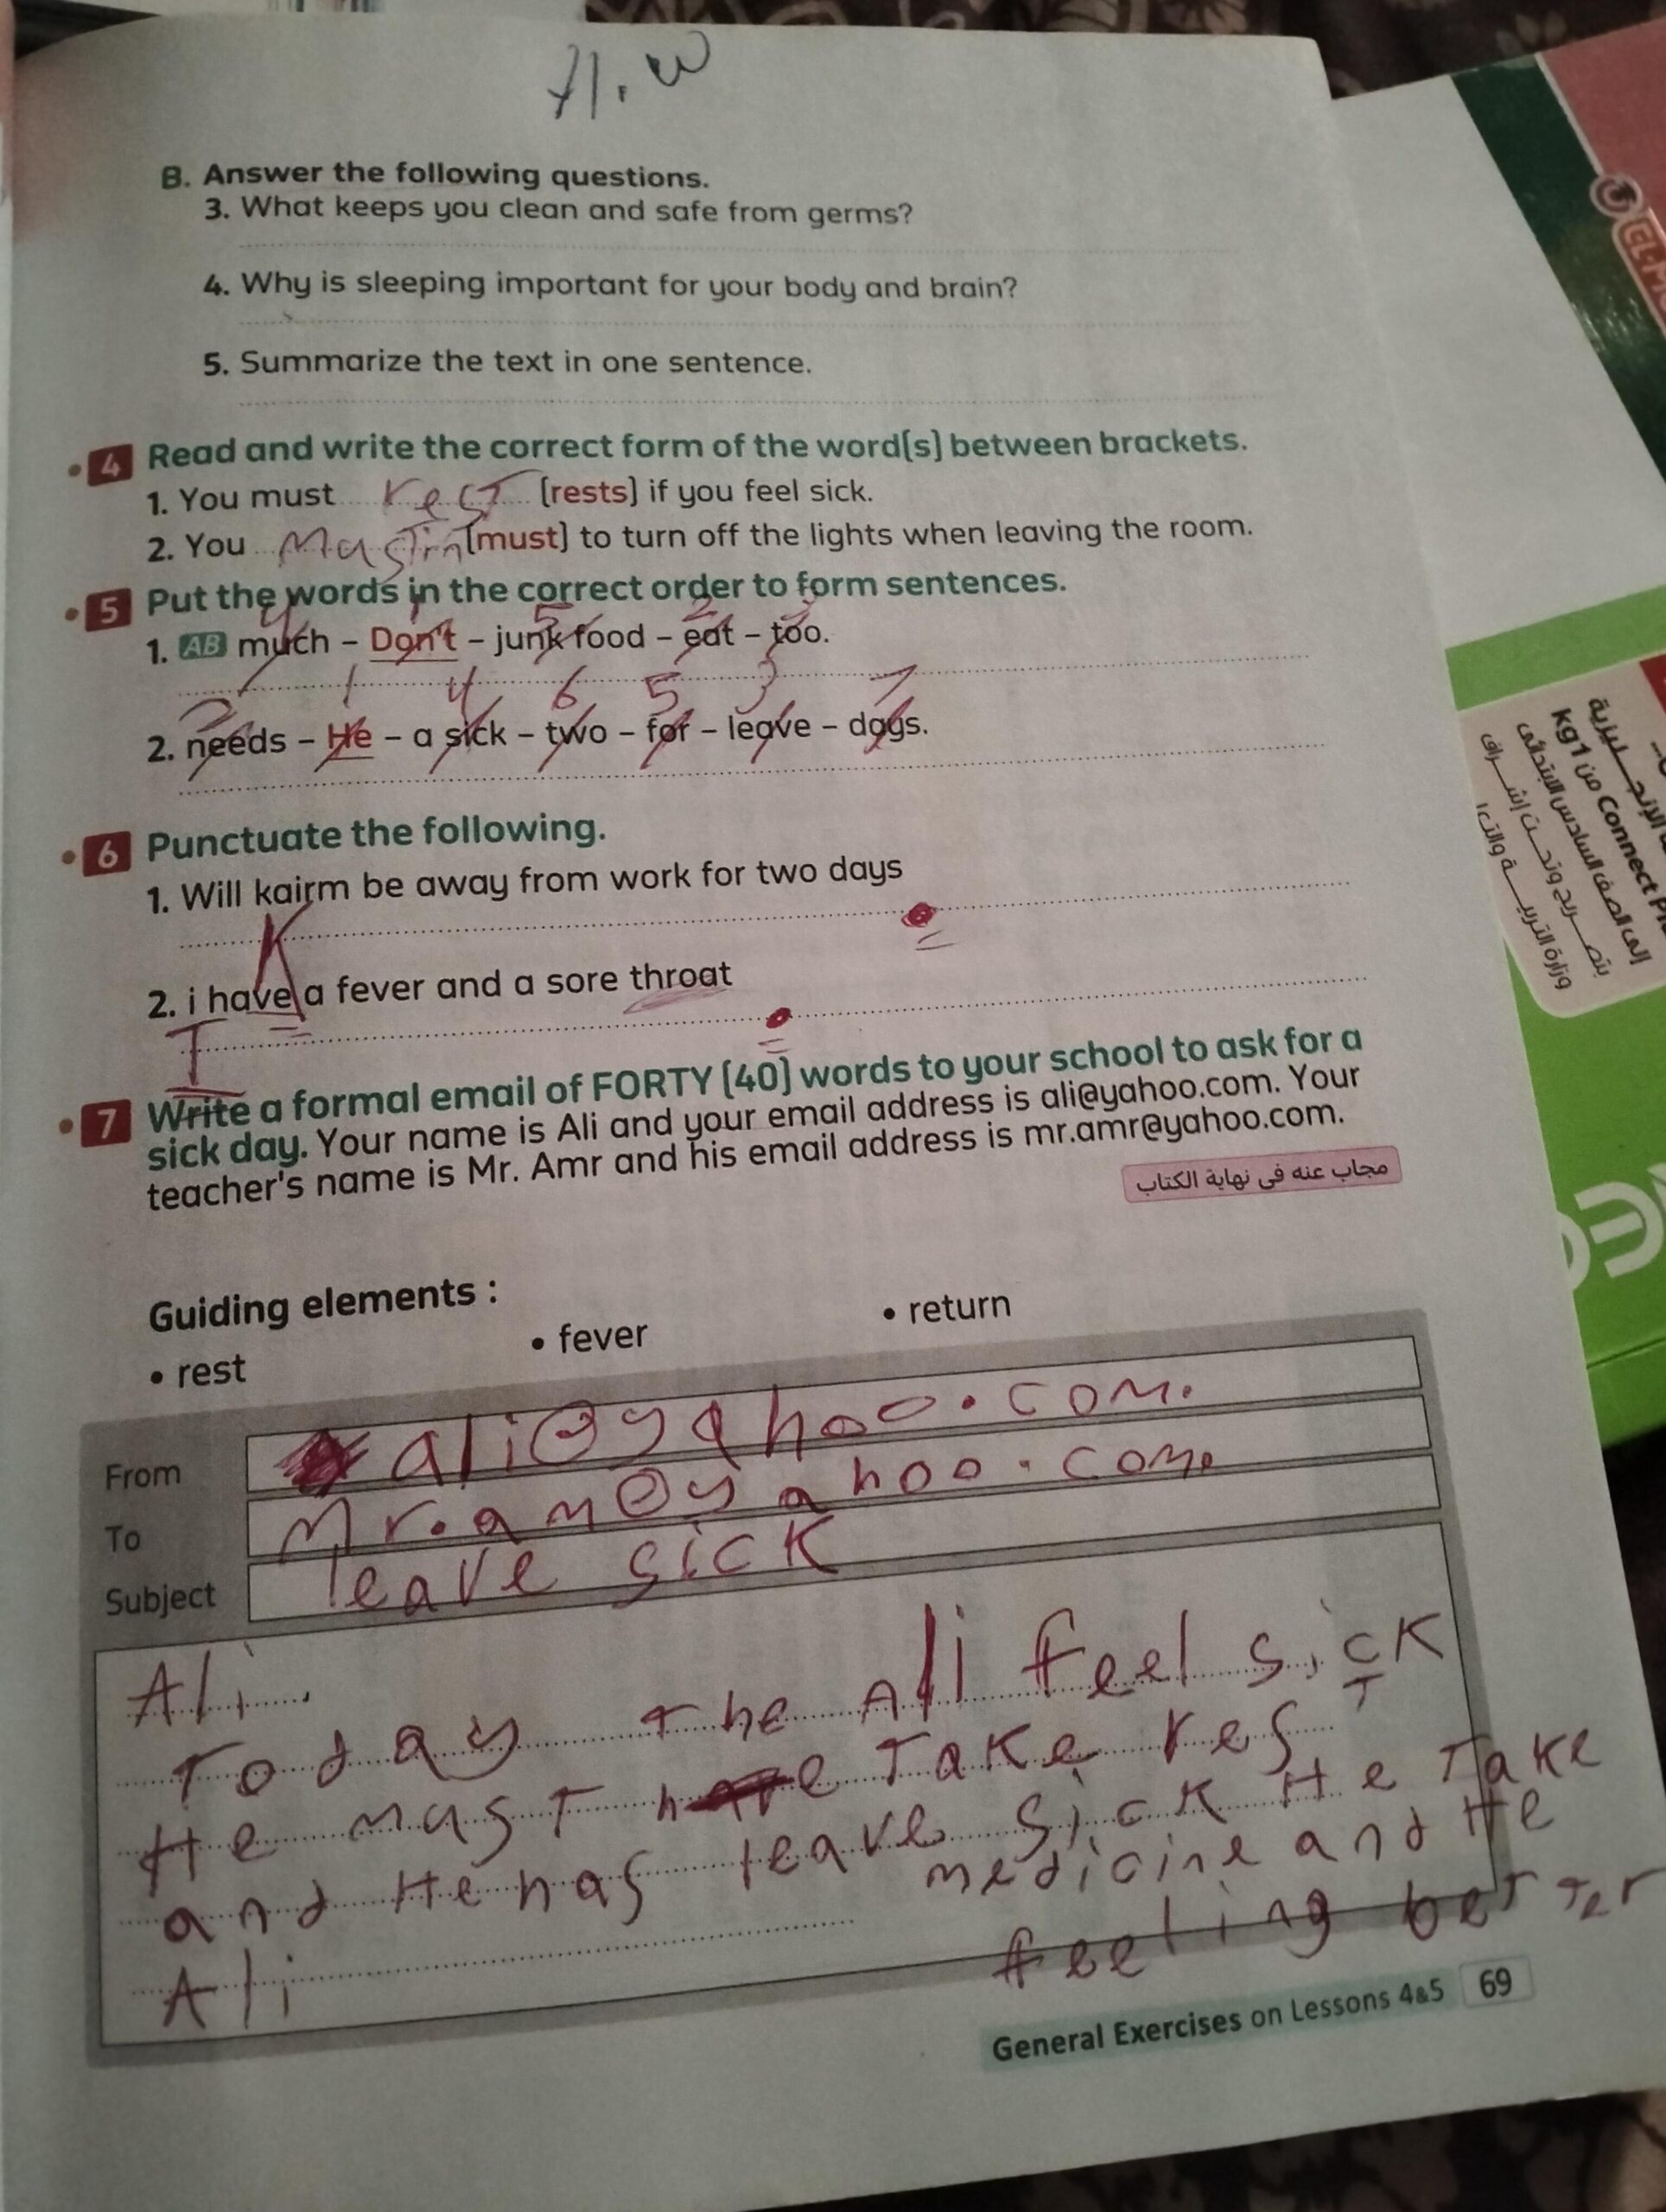 H.W
B. Answer the following questions.
3. What keeps you clean and safe from germs?
4. Why is sleeping important for your body and brain?
5. Summarize the text in one sentence.
4 Read and write the correct form of the word(s) between brackets.
1. You must rest (rests) if you feel sick.
2. You (must) to turn off the lights when leaving the room.
5 Put the words in the correct order to form sentences.
4 1 5 2 3
1. AB much – Don't – junk food – eat – too.
2 1 4 6 5 3 7
2. needs – He – a sick – two – for – leave – days.
6 Punctuate the following.
1. Will kairm be away from work for two days
K .
2. i have a fever and a sore throat
I .
7 Write a formal email of FORTY (40) words to your school to ask for a
sick day. Your name is Ali and your email address is ali@yahoo.com. Your
teacher's name is Mr. Amr and his email address is mr.amr@yahoo.com.
مجاب عنه فى نهاية الكتاب
Guiding elements :
• rest • fever • return
From ali@yahoo.com.
To Mr.am@yahoo.com.
Subject leave sick
Ali.
Today The Ali feel sick
He mast Take rest
and He has leave sick He Take
medicine and He
feeling better
Ali
General Exercises on Lessons 4&5 69
EL-M
kg1 من Connect Pl
إلى الصف السادس الابتدائى